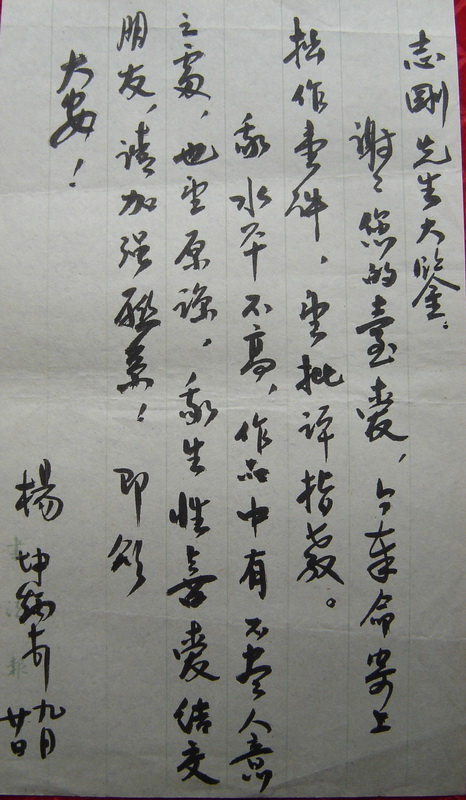 志剛先生大鉴。
谢々您的臺爱，今奉命寄上
拙作壹件，望批评指教。
我水平不高，作品中有不尽人意
之處，也望原谅，我生性喜爱结交
朋友，请加强联系！即頌
大安！
楊坤炳
九月
廿日